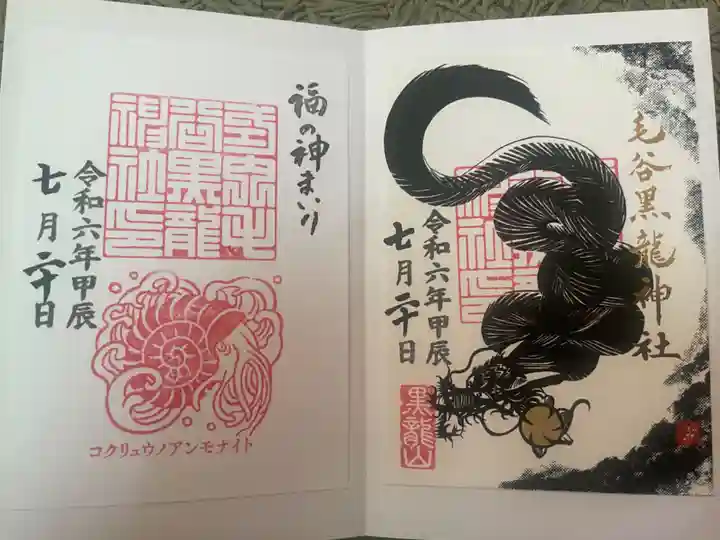 福の神まいり
谷黒龍
神社印
令和六年甲辰
七月二十日
コクリュウノアンモナイト
毛谷黒龍神社
令和六年甲辰
七月二十日
黒龍山